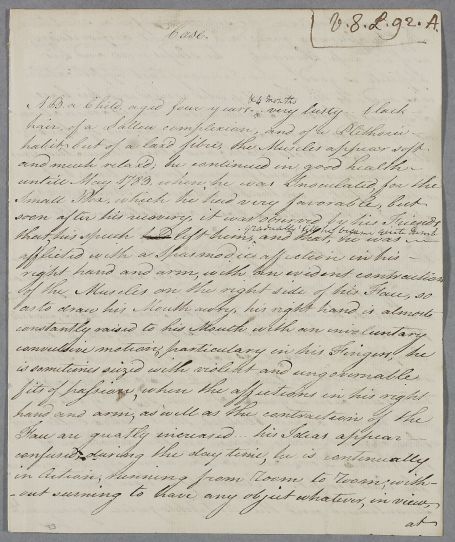 V. 8. L. 92. A.
Case.
& 4 months
N B. a Child aged four years very lusty black
hair, of a Sallow complexion, and of a Plethoric
habit, but of a laxd fibre, the Muscles appear soft
and much relaxd, he continued in good health
untill May 1783 when he was Inoculated for the
Small Pox, which he had very favorable, but
soon after his recovery, it was observed by his Friends,
gradually till he became quite dumb
that his Speech left him, and that he was
afflicted with a Spasmodic affection in his
right hand and arm, with an evident contraction
of the Muscles on the right side of his Face, so
as to draw his Mouth awry, his right hand is almost
constantly raised to his Mouth with an involuntary
convulsive motion, particulary in his Fingers, he
is sometimes seized with violent and ungovernable
fits of passion, when the affections in his right
hand and arm, as well as the contraction of the
Face are greatly increased his Ideas appear
confused, during the day time, he is continually
in Action, running from Room to Room, with-
-out seeming to have any object whatever, in view,
at